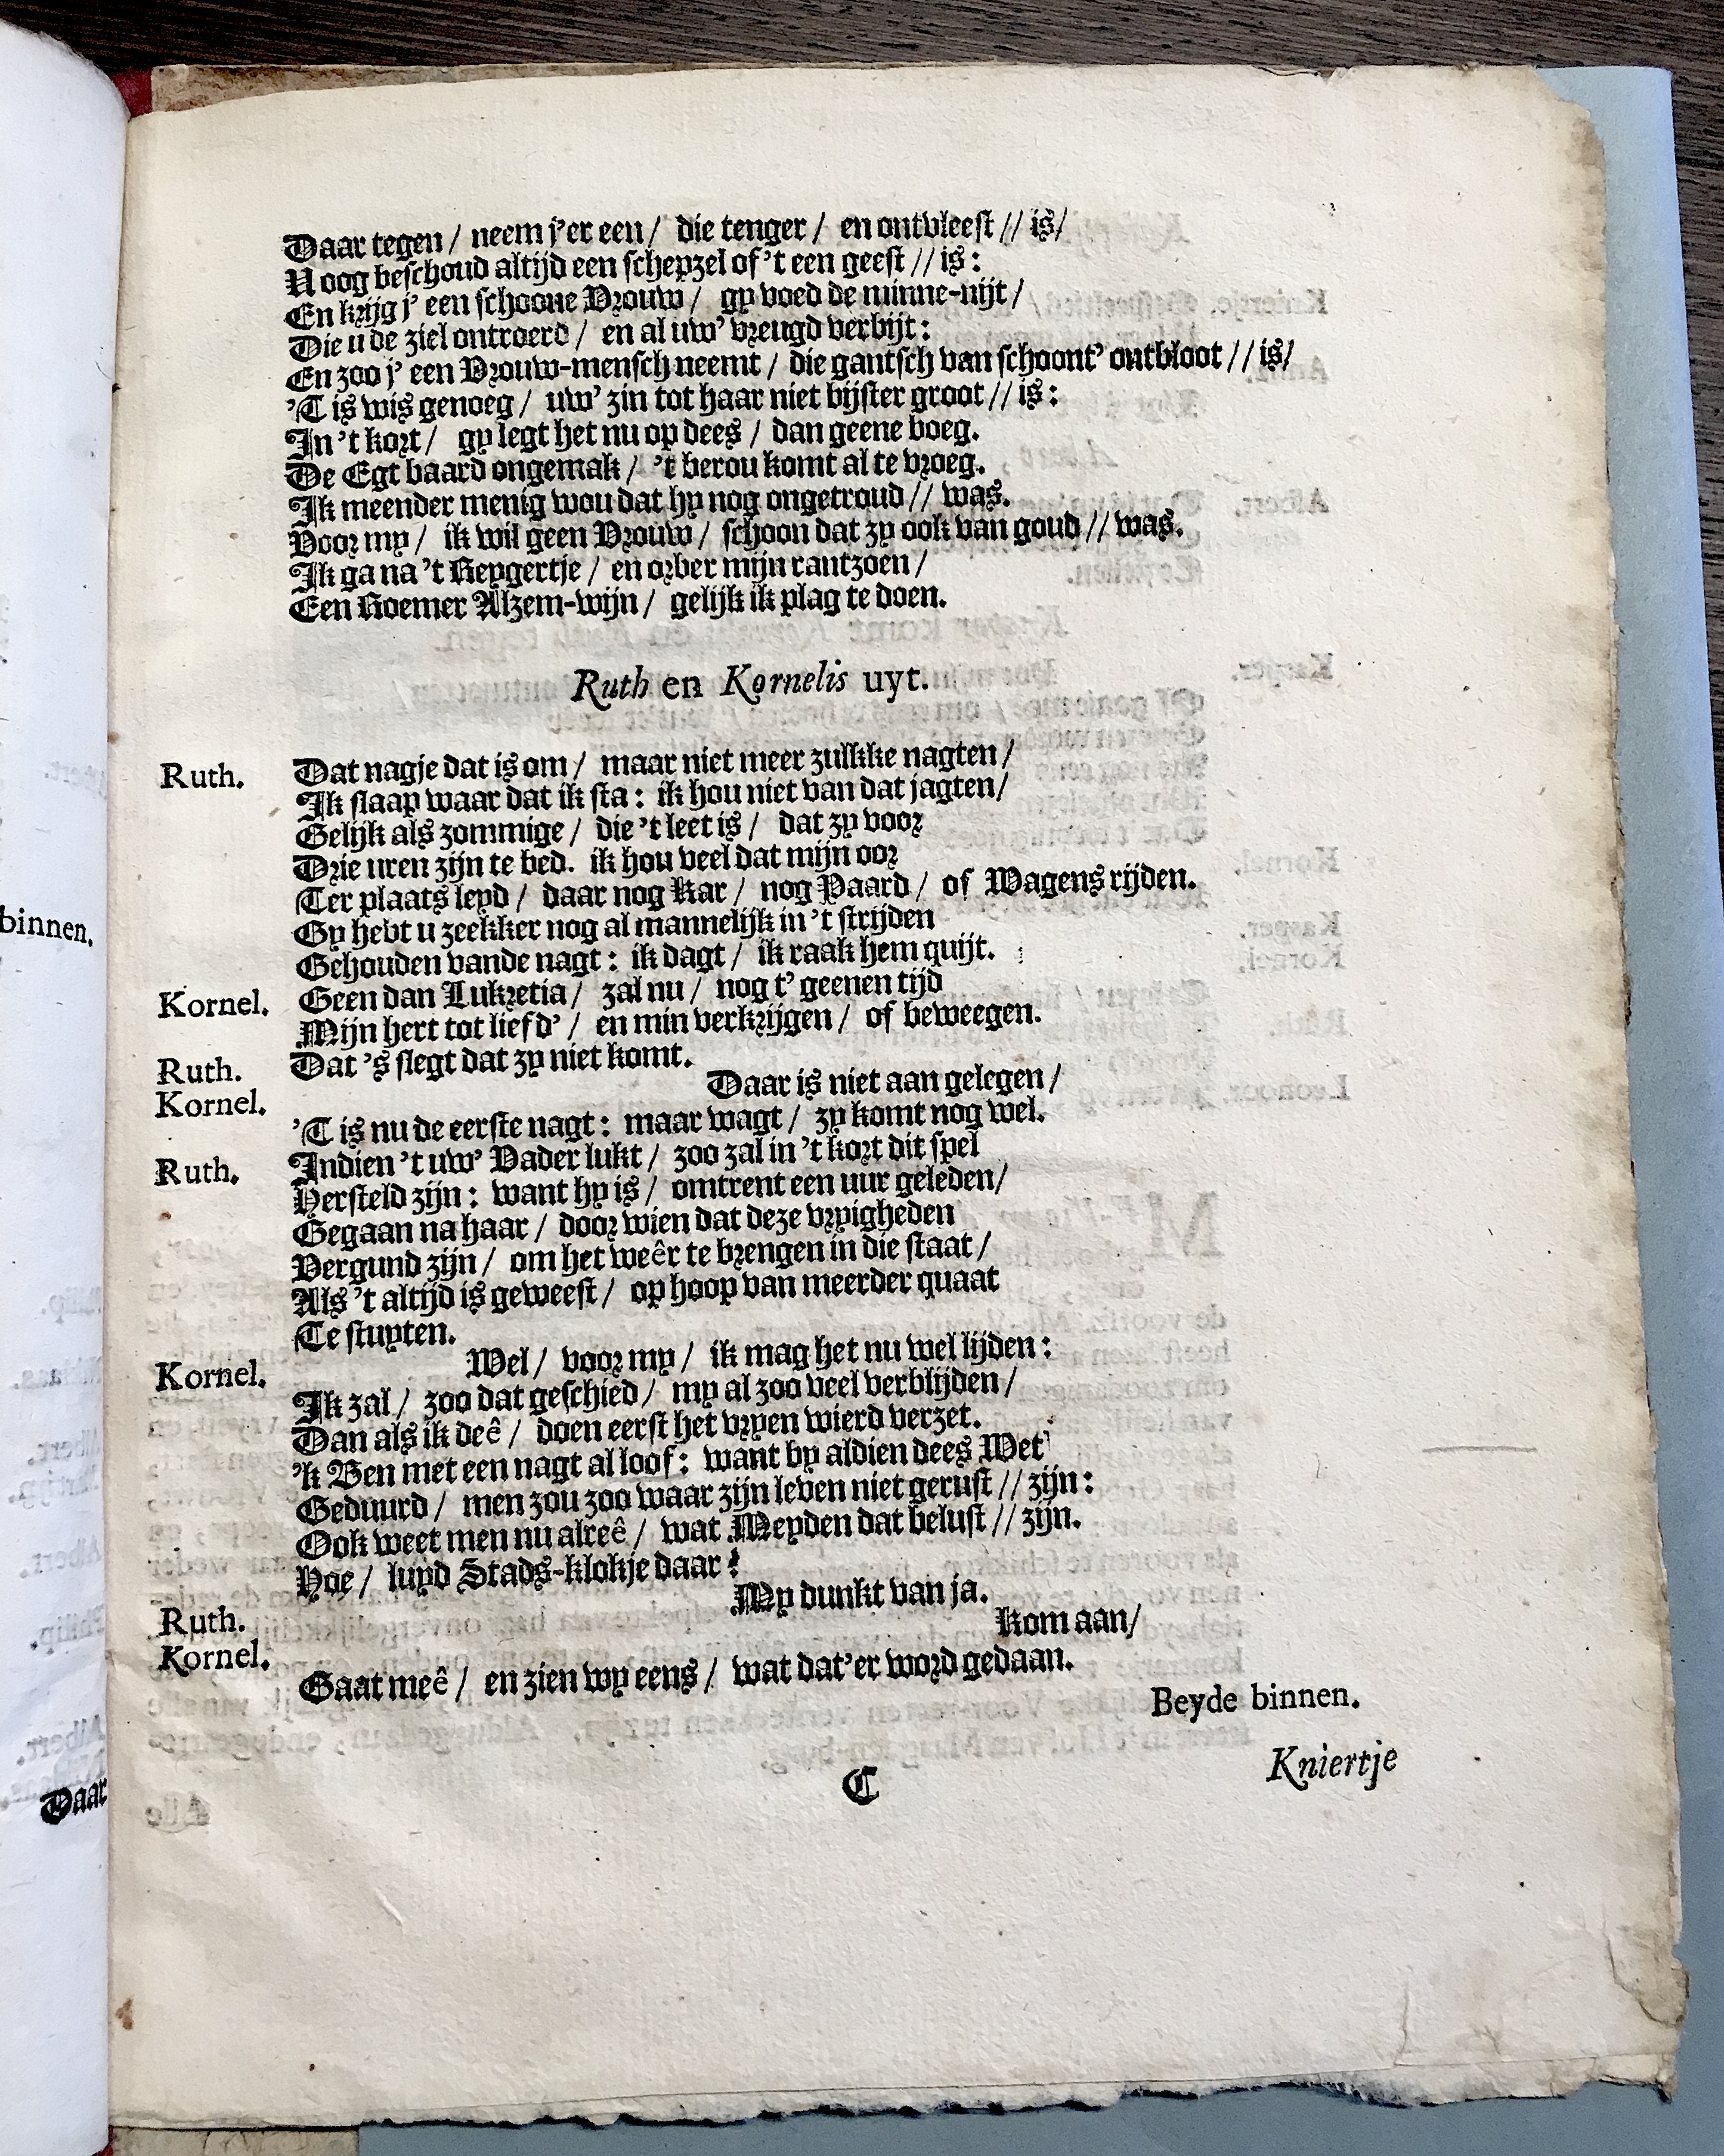 Daar tegen / neem j'er een / die tenger / en ontvleest // is/
U oog beschoud altijd een schepzel of 't een geest // is:
En krijg j' een schoone Vrouw / gy voed de minne-nijt /
Die u de ziel ontroerd / en al uw' vreugd verbijt:
En zoo j' een Vrouw-mensch neemt / die gantsch van schoont' ontbloot // is/
'T is wis genoeg / uw' zin tot haar niet bijster groot // is:
In 't kort / gy legt het nu op dees / dan geene boeg.
De Egt baard ongemak / 't berou komt al te vroeg.
Ik meender menig wou dat hy nog ongetroud // was.
Voor my / ik wil geen Vrouw / schoon dat zy ook van goud // was.
Ik ga na 't Reygertje / en orber mijn rantzoen /
Een Roemer Alzem-wijn / gelijk ik plag te doen.
Ruth en Kornelis uyt.
Ruth. Dat nagje dat is om / maar niet meer zulkke nagten /
Ik slaap waar dat ik sta: ik hou niet van dat jagten /
Gelijk als zommige / die 't leet is / dat zy voor
Drie uren zijn te bed. ik hou veel dat mijn oor
Ter plaats leyd / daar nog Kar / nog Paard / of Wagens rijden.
Gy hebt u zeekker nog al mannelijk in 't strijden
Gehouden vande nagt: ik dagt / ik raak hem quijt.
Kornel. Geen dan Lukretia / zal nu / nog t' geenen tijd
Mijn hert tot liefd' / en min verkrijgen / of beweegen.
Ruth. Dat 's slegt dat zy niet komt.
Kornel. Daar is niet aan gelegen /
'T is nu de eerste nagt: maar wagt / zy komt nog wel.
Ruth. Indien 't uw' Vader lukt / zoo zal in 't kort dit spel
Hersteld zijn: want hy is / omtrent een uur geleden /
Gegaan na haar / door wien dat deze vryigheden
Vergund zijn / om het weêr te brengen in die staat /
Als 't altijd is geweest / op hoop van meerder quaat
Te stuyten.
Kornel. Wel / voor my / ik mag het nu wel lijden:
Ik zal / zoo dat geschied / my al zoo veel verblijden /
Dan als ik deê / doen eerst het vryen wierd verzet.
'k Ben met een nagt al loof: want by aldien dees Wet
Geduurd / men zou zoo waar zijn leven niet gerust // zijn:
Ook weet men nu alreê / wat Meyden dat belust // zijn.
Hoe / luyd Stads-klokje daar?
Ruth. My dunkt van ja.
Kornel. Kom aan/
Gaat meê / en zien wy eens / wat dat'er word gedaan.
Beyde binnen.
C
Kniertje
binnen.
Daar